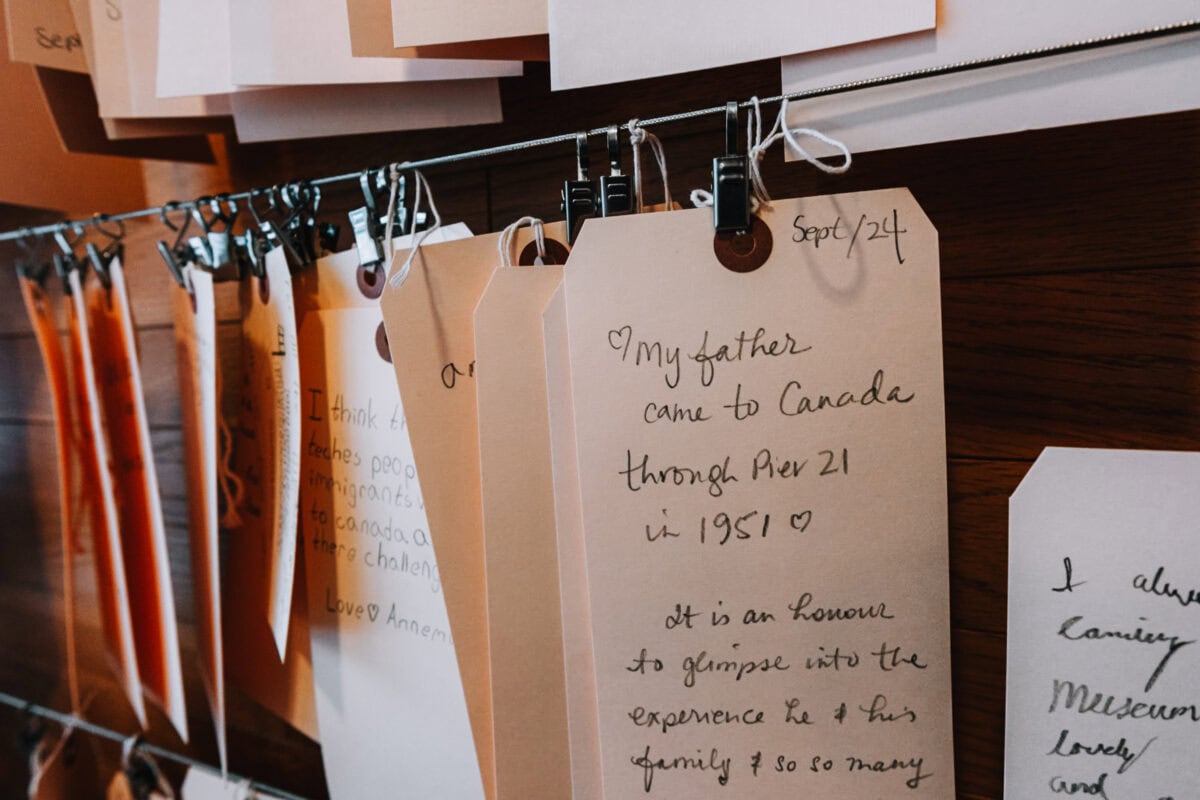 Sept
Sept/24
♡My father
came to Canada
through Pier 21
in 1951 ♡
It is an honour
to glimpse into the
experience he & his
family & so so many
I think
teches
immigrants
to canada
there
Love♡
I
Museum
lovely
and